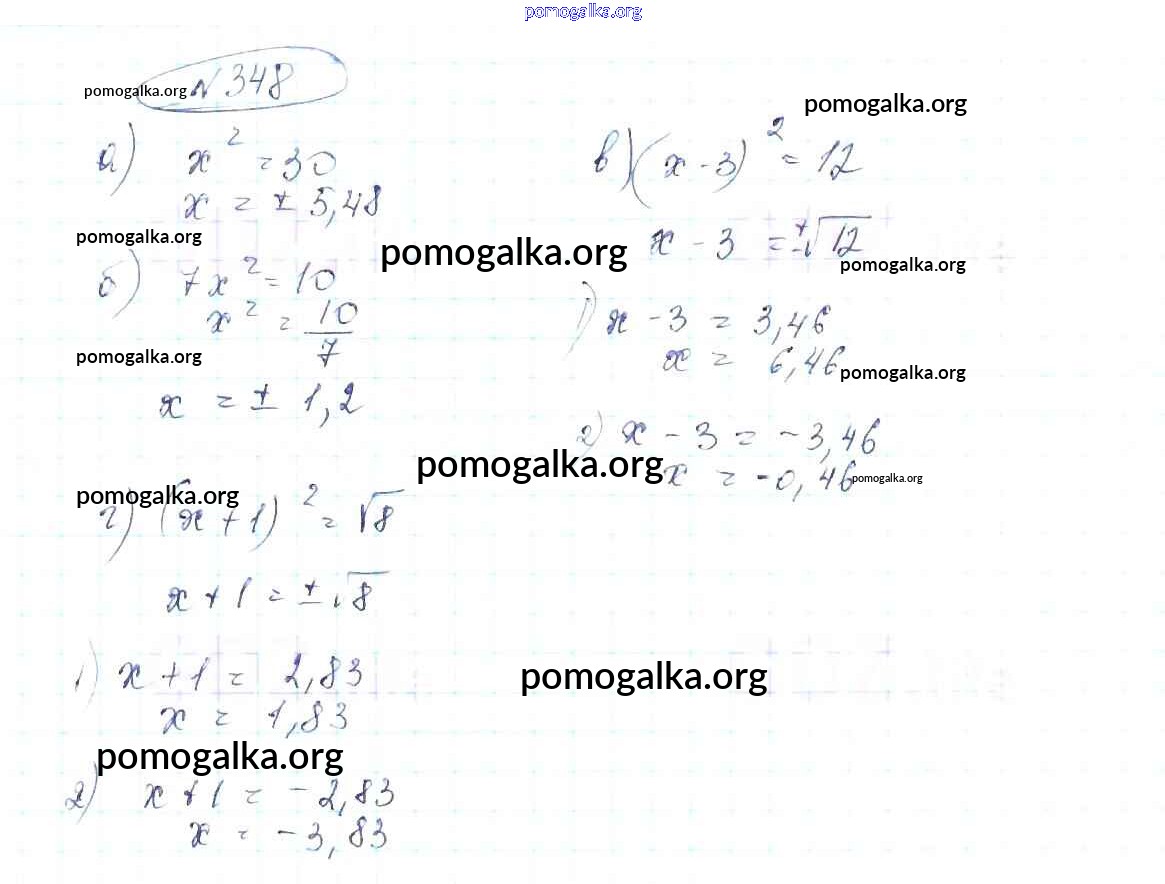 pomogalka.org
pomogalka.org
№ 348
pomogalka.org
а) x² = 30
x = ± 5,48
pomogalka.org
б) 7x² = 10
x² = 10/7
pomogalka.org
x = ± 1,2
в) (x - 3)² = 12
pomogalka.org
x - 3 = ±√12
pomogalka.org
1) x - 3 = 3,46
x = 6,46
pomogalka.org
2) x - 3 = -3,46
pomogalka.org
x = -0,46
pomogalka.org
pomogalka.org
г) (x + 1)² = √8
x + 1 = ±√8
1) x + 1 = 2,83
pomogalka.org
x = 1,83
pomogalka.org
2) x + 1 = -2,83
x = -3,83